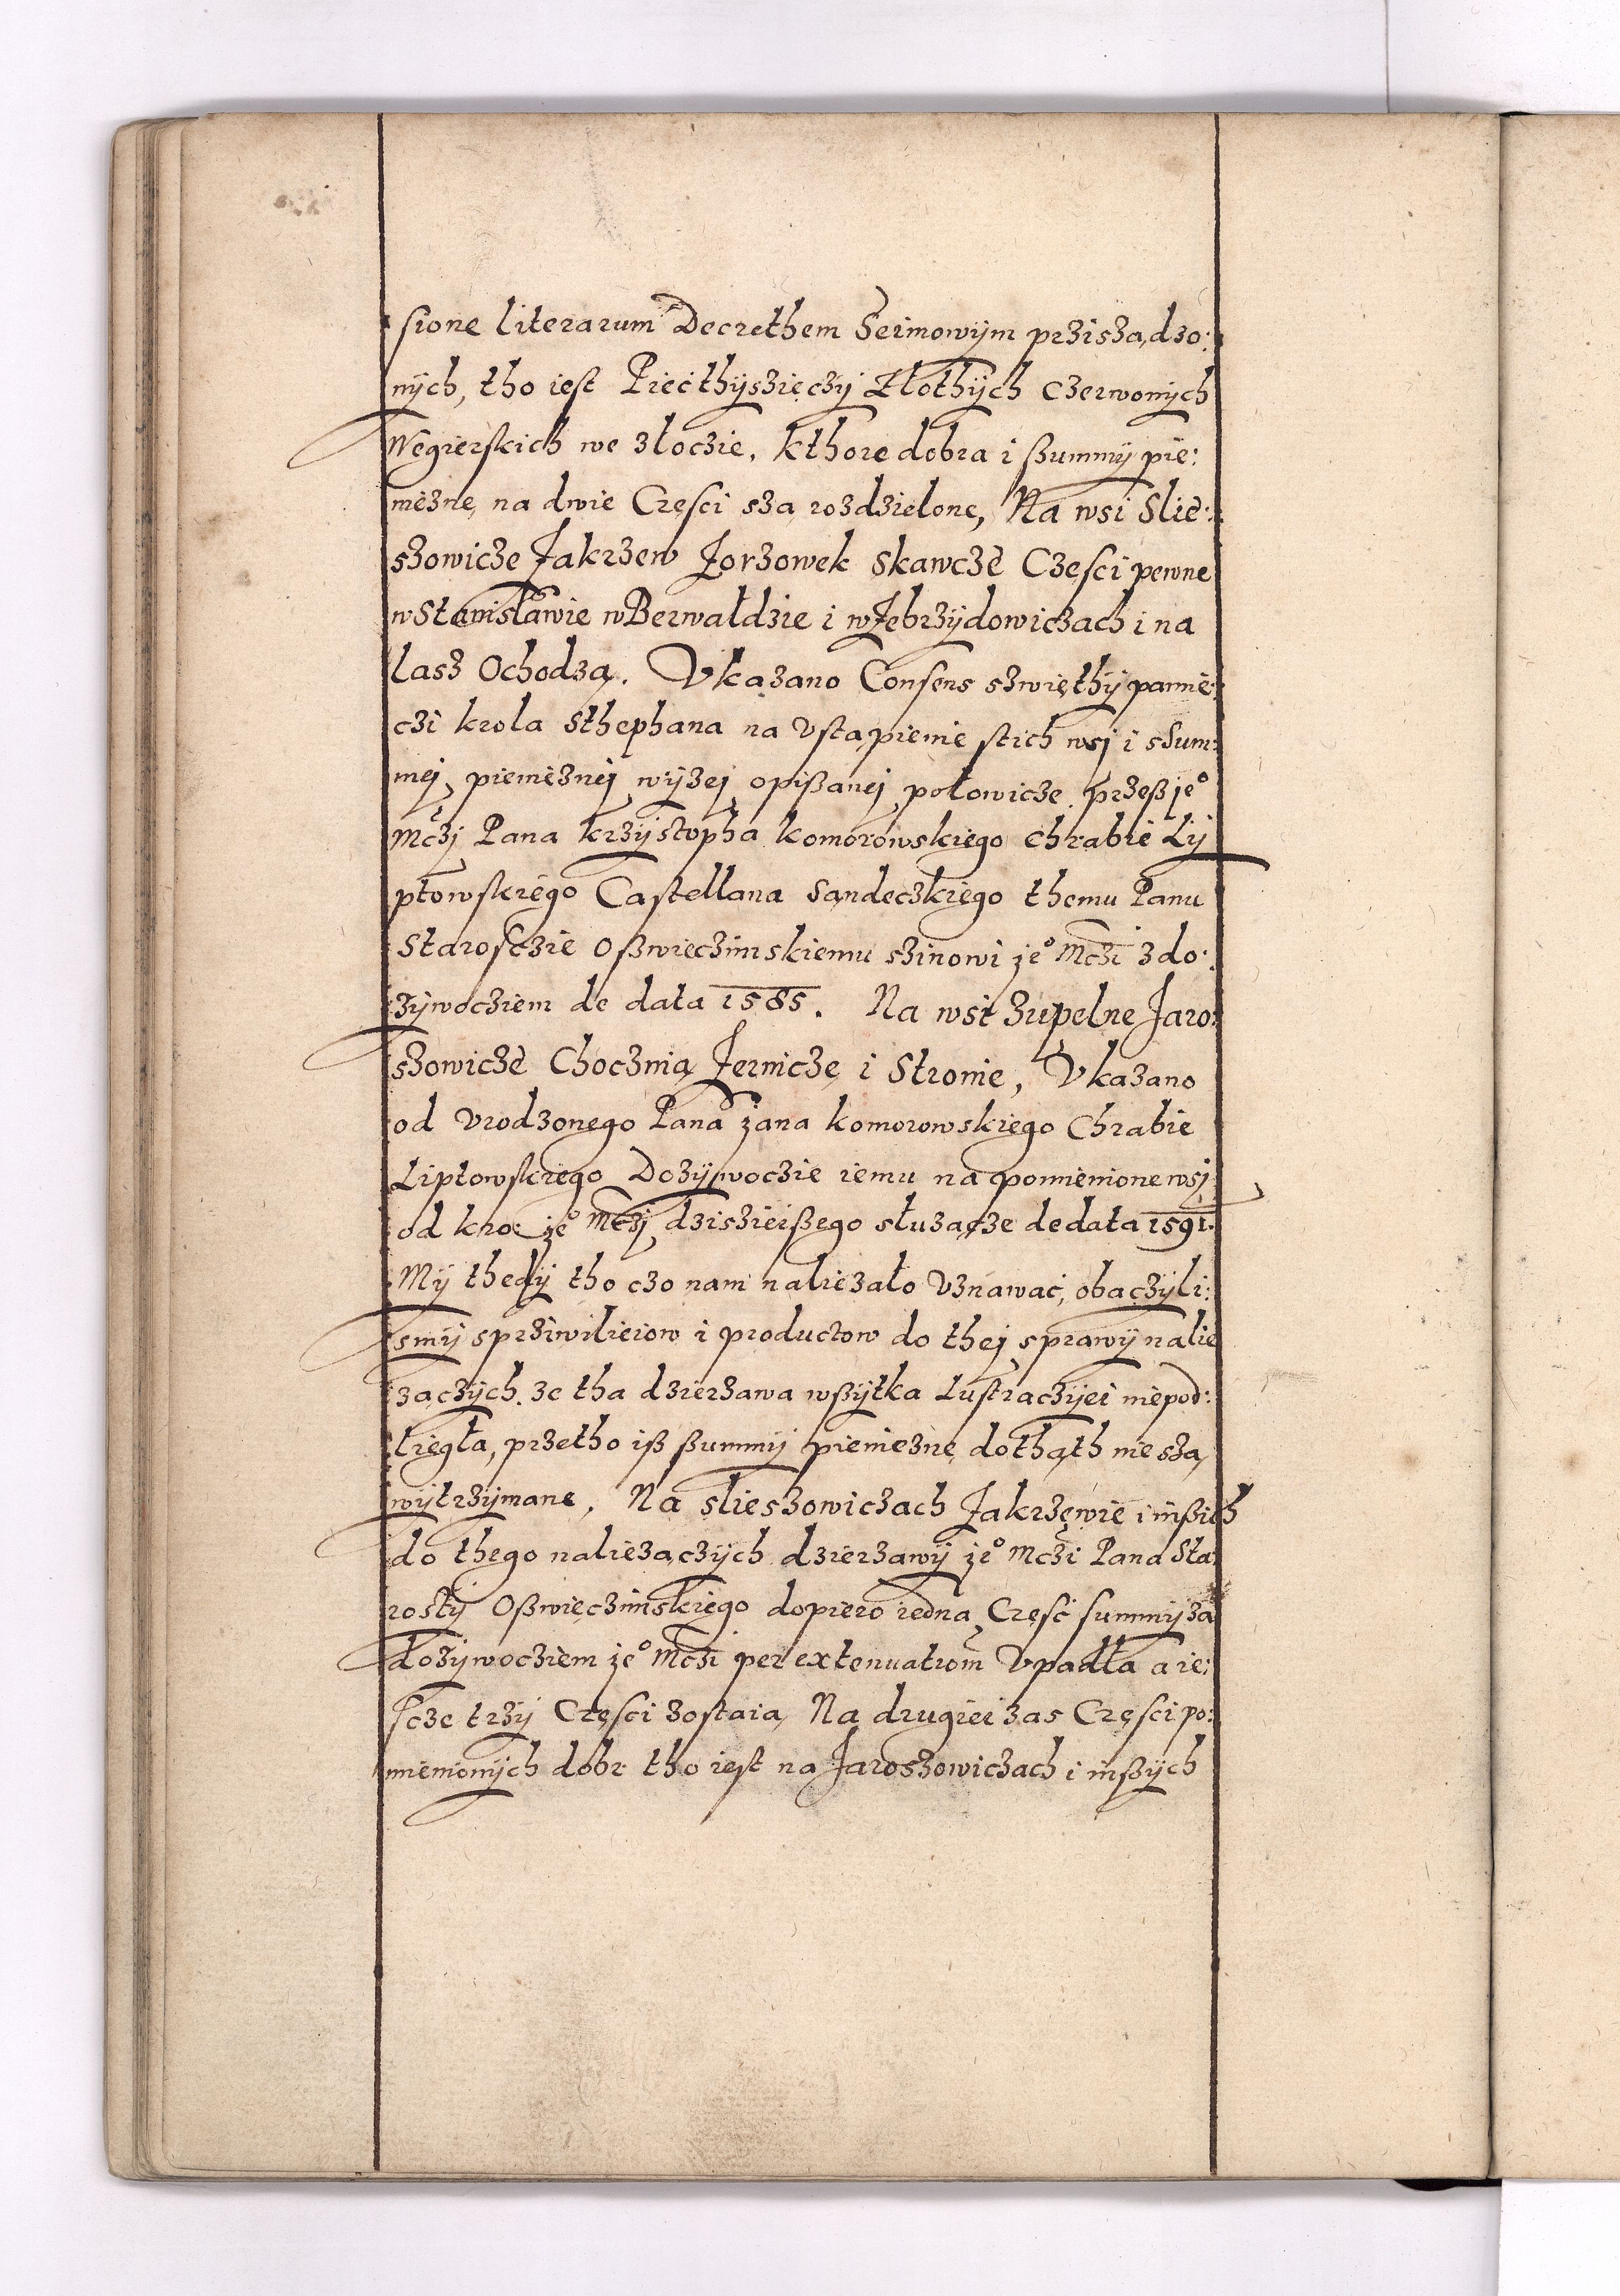 sione literarum Decrethem Seimowÿm prziszą,dzo:
nÿch, tho iest Piećthÿsięczÿ Złothÿch czerwonÿch
Węgierskich we złoczie, kthore dobra i ßummÿ pie:
niezne, na dwie Częsci sza, rozdzielone, Na wsi Slie:
szowicze Jakrzew Jorzowek Skawcze Częsci pewne
w Stanisławie w Berwałdzie i w Zebrzÿdowiczach i na
lasz Ochodzą. Vkazano Consens szwięthÿ pamie:
czi krola Sthephana na Vstąpienie stich wsj i szum:
mej, pieniężnej, wÿzej, opißanej, połowicze, przeß je°
Mczj Pana krzÿstopha komorowskiego chrabie Lÿ
ptowskiego Castellana Sandeczkiego themu Panu
Starosczie Oßwieczimskiemu szinowi je° Mczi z do:
zÿwocziem de data 1585. Na wsi zupelne Jaro:
szowicze Chocznią, Jernicze i Stronie, Vkazano
od Vrodzonego Pana jana komorowskiego Chrabie
Liptowskiego Dozÿwoczie iemu na pomienione wsj
od kro: je° Mczj, dzisieißego słuzącze de data 1591.
Mÿ thedÿ tho czo nam naliezało Vznawać, obaczÿli:
smÿ z prziwilieiow i productow do thej, sprawÿ nalie
zączÿch. ze tha dzierzawa wßÿtka Lustraczÿei niepod:
liegła, przetho iß ßummÿ pieniezne, dothąth nie sza,
wÿtrzÿmane, Na slieszowiczach Jakrzewie i inßich
do thego naliezączÿch dzierzawÿ je° Mczi Pana Sta:
rostÿ Oßwięczimskiego dopiero iedna, Częsć summÿ za
dozÿwocziem je° Mczi per extenuatiom Vpadła a ie:
scze trzÿ Częsci zostaią, Na drugiei zas Częsci po:
mienionÿch dobr tho iest na Jaroszowiczach i inßÿch